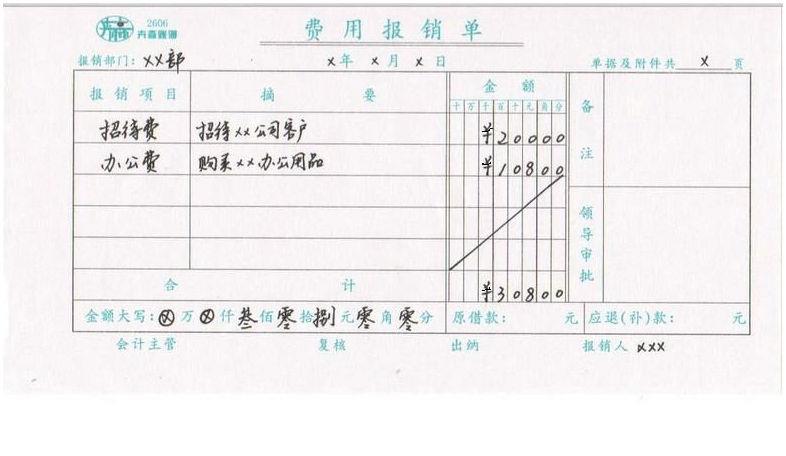 2606
卉森账簿
费用报销单
报销部门：XX部 X年 X月 X日 单据及附件共 X 页
报销项目 摘要 金额 备注
十万千百十元角分
招待费 招待XX公司客户 ¥20000
办公费 购买XX办公用品 ¥10800
领导审批
合计 ¥30800
金额大写：ⓧ万ⓧ仟叁佰零拾捌元零角零分 原借款： 元 应退(补)款： 元
会计主管 复核 出纳 报销人 XXX